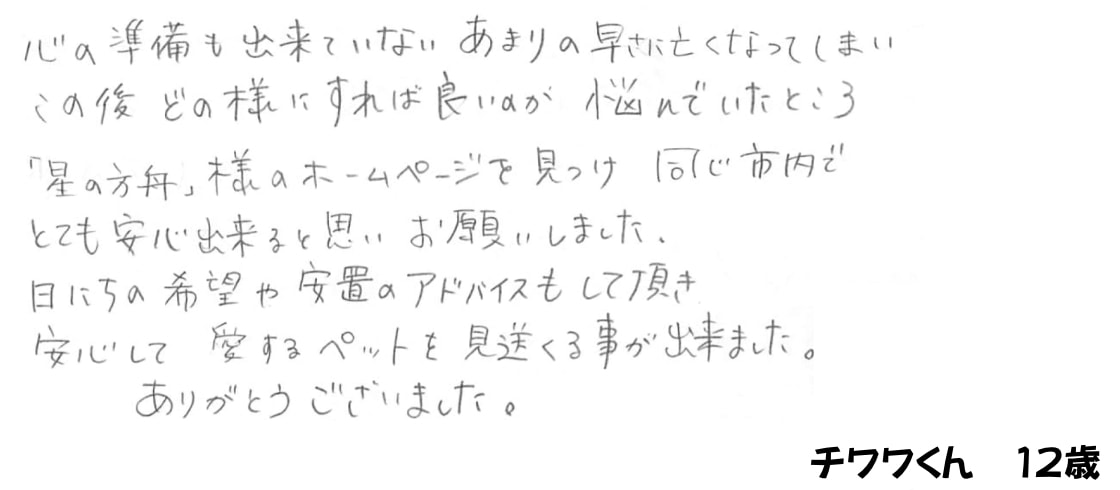 心の準備も出来ていない あまりの早さに亡くなってしまい
この後 どの様にすれば良いのか 悩んでいたところ
「星の方舟」様のホームページを見つけ 同じ市内で
とても安心出来ると思い お願いしました.
日にちの希望や安置のアドバイスもして頂き
安心して 愛するペットを見送くる事が出来ました。
ありがとうございました。
チワワくん 12歳